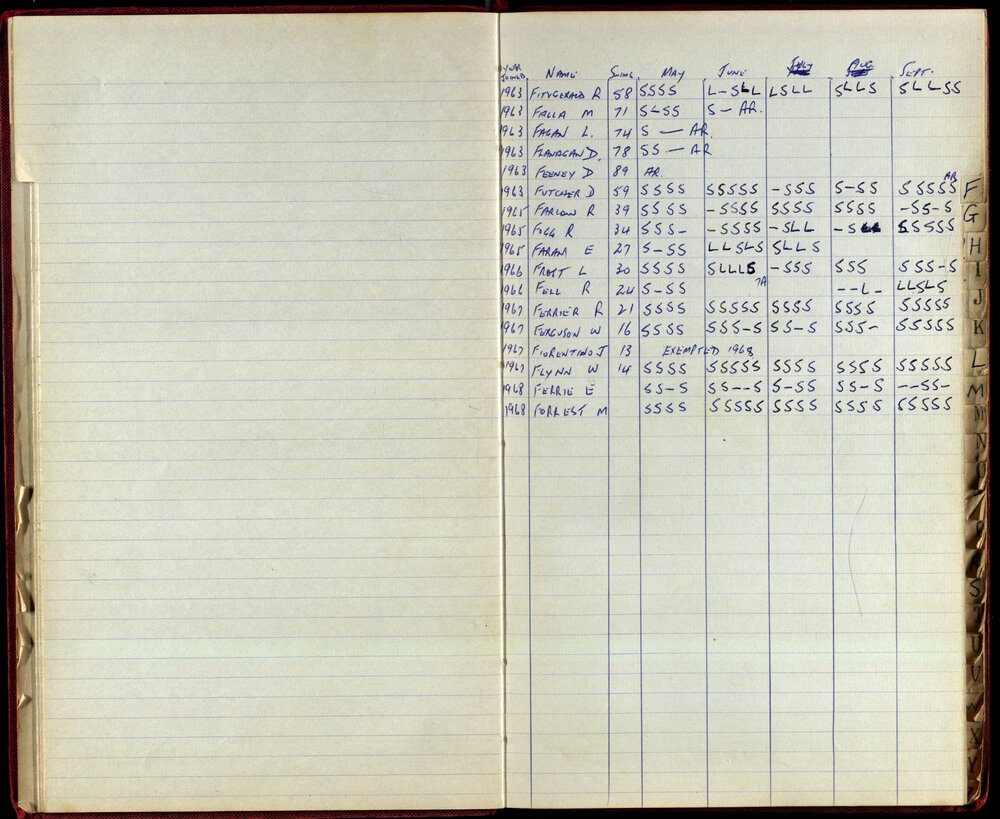 YEAR JOINED NAME SWIM. MAY JUNE JULY AUG SEPT.
1963 FITZGERALD R 58 SSSS L-SLL LSLL SLLS SLLSS
1963 FALLA M 71 S-SS S- AR.
1963 FAGAN L. 74 S — AR.
1963 FLANAGAN D. 78 SS — AR
1963 FEENEY D 89 AR.
1963 FUTCHER D 59 SSSS SSSSS -SSS S-SS SSSSS AR
1965 FARLOW R 39 SSSS -SSSS SSSS SSSS -SS-S
1965 FIGG R 34 SSS- -SSSS -SLL -S SSSSS
1965 FARAM E 27 S-SS LLSLS SLLS
1966 FROST L 30 SSSS SLLLS -SSS SSS SSS-S
1966 FELL R 24 S-SS 7A --L- LLSLS
1967 FERRIER R 21 SSSS SSSSS SSSS SSSS SSSSS
1967 FERGUSON W 16 SSSS SSS-S SS-S SSS- SSSSS
1967 FIORENTINO J 13 EXEMPTED 1968
1967 FLYNN W 14 SSSS SSSSS SSSS SSSS SSSSS
1968 FERRIE E SS-S SS--S S-SS SS-S --SS-
1968 FORREST M SSSS SSSSS SSSS SSSS SSSSS
F
G
H
I
J
K
L
M
N
O
P
R
S
T
U
V
X
Y